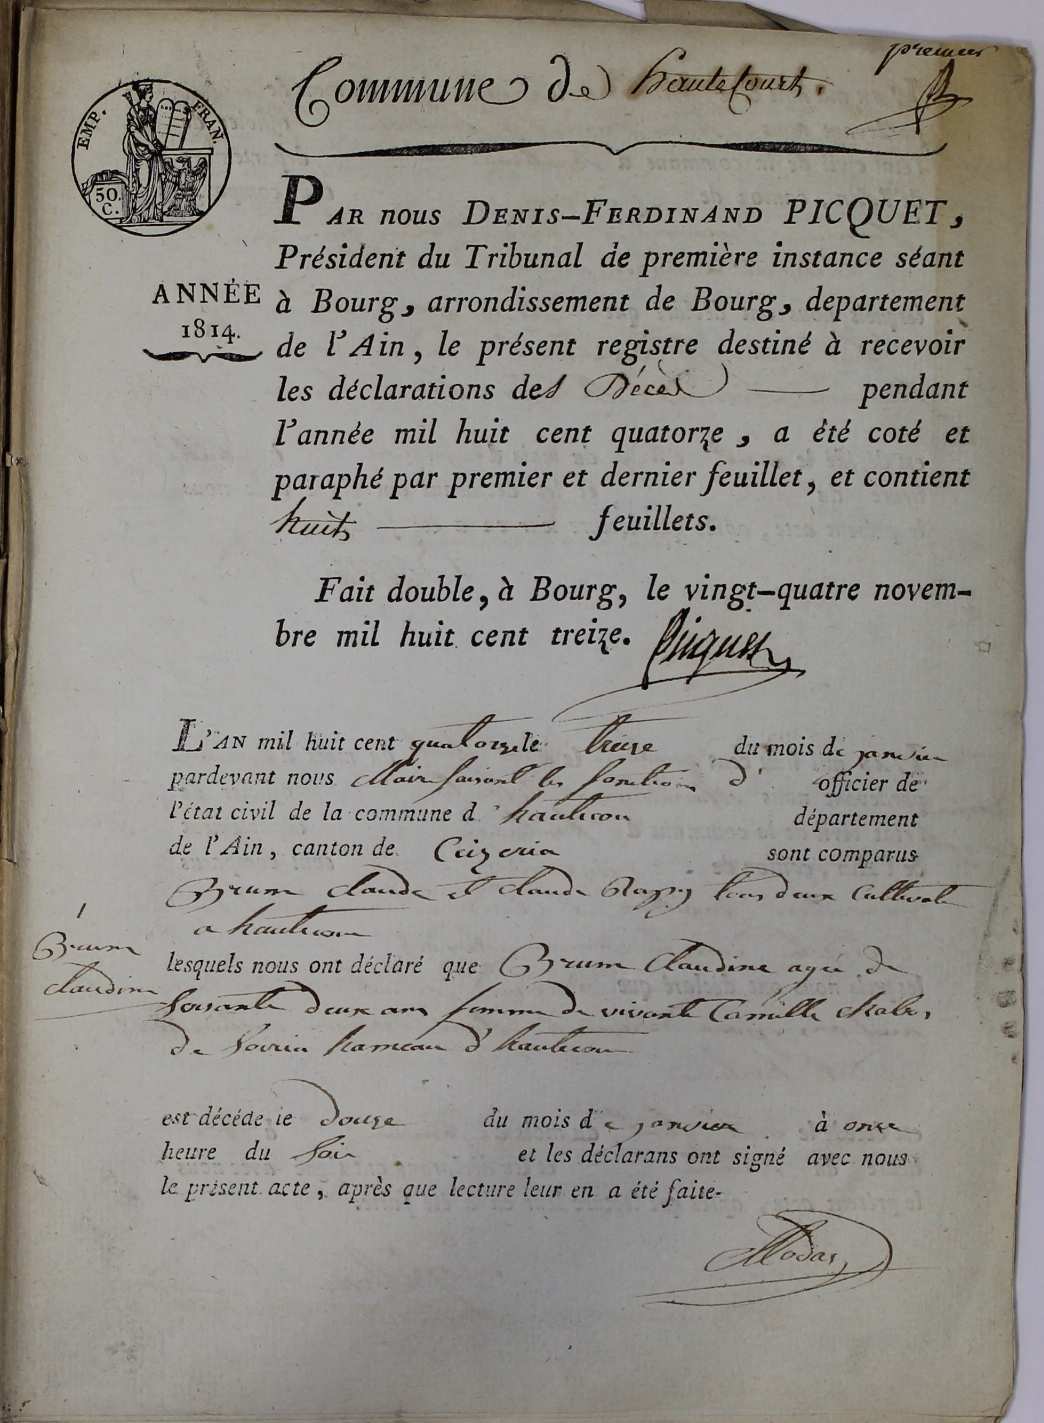 premier
Commune de hautecourt.
EMP. FRAN.
50. C.
PAR nous DENIS-FERDINAND PICQUET,
Président du Tribunal de première instance séant
ANNÉE
1814.
à Bourg, arrondissement de Bourg, departement
de l'Ain, le présent registre destiné à recevoir
les déclarations des Décès pendant
l'année mil huit cent quatorze, a été coté et
paraphé par premier et dernier feuillet, et contient
huit feuillets.
Fait double, à Bourg, le vingt-quatre novem-
bre mil huit cent treize. Picquet
L'AN mil huit cent quatorze le treize du mois de janvier
pardevant nous Maire faisant les fonctions d' officier de
l'état civil de la commune d'hautecour département
de l'Ain, canton de Ceizeria sont comparus
Brum claude et claude tous deux Cultivat
a hautecour
1
Brum
claudine
lesquels nous ont déclaré que Brum claudine agée de
soisante deux ans femme de vivante Camille
de hameau d'hautecour
est décédé le douze du mois de janvier à onze
heure du soir et les déclarans ont signé avec nous
le présent acte, après que lecture leur en a été faite.